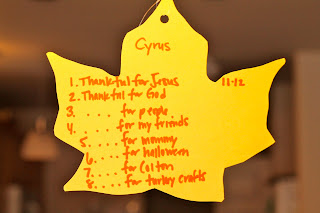 Cyrus
1. Thankful for Jesus 11-12
2. Thankful for God
3. ..... for people
4. ..... for my friends
5. ..... for mommy
6. ..... for halloween
7. ..... for Colton
8. ..... for turkey crafts